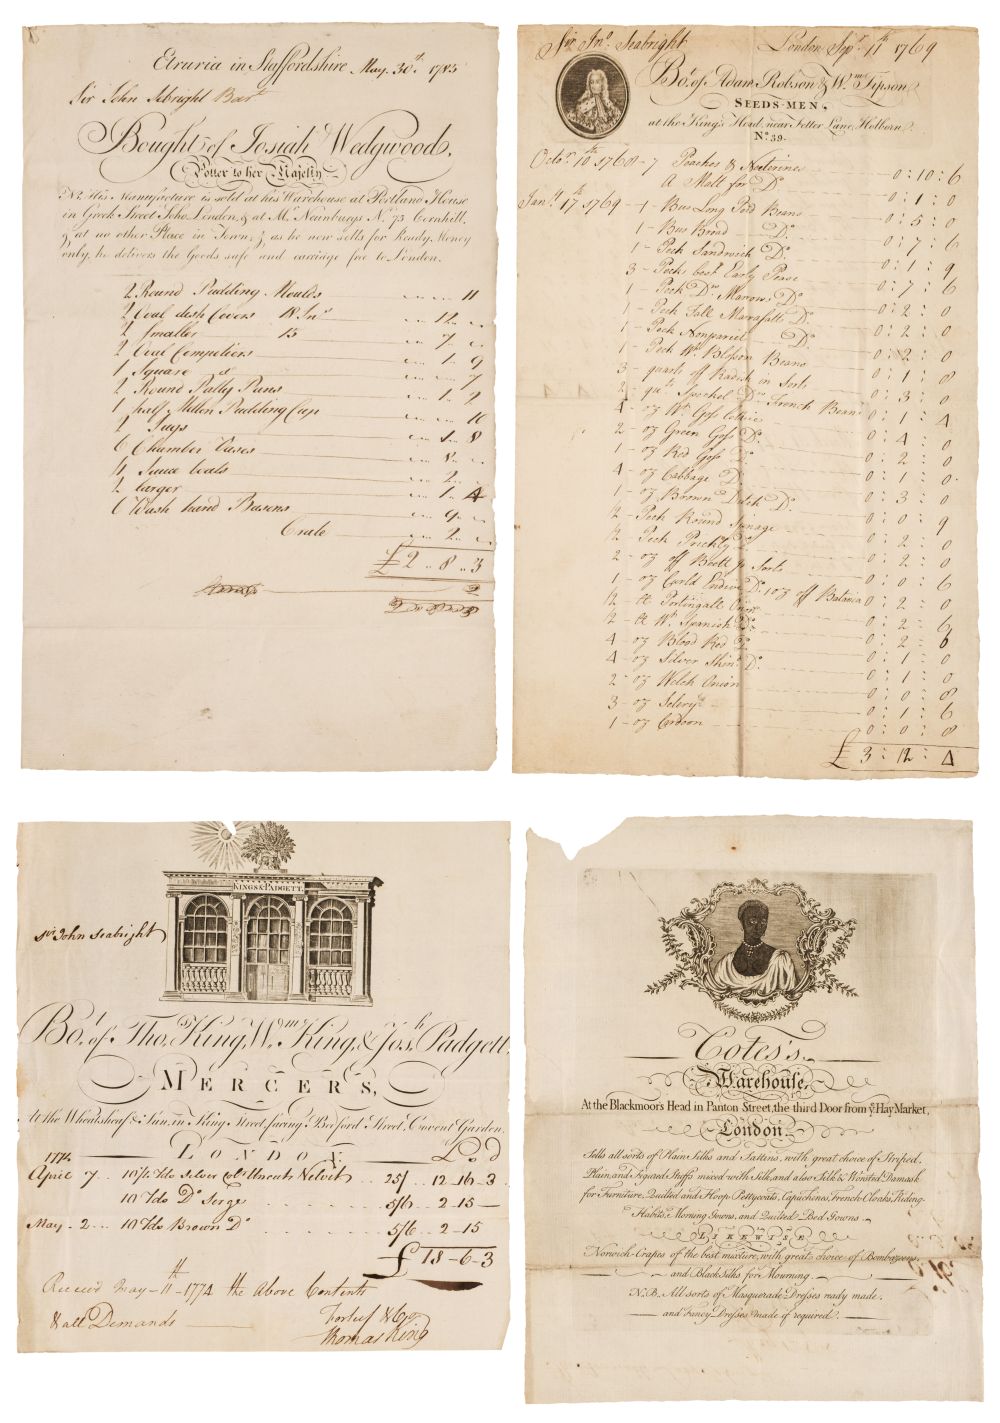 Etruria in Staffordshire May. 30th. 1785
Sir John Sebright Bart
Bought of Josiah Wedgwood,
Potter to her Majesty
N.B. His Manufacture is sold at his Warehouse at Portland House
in Greek Street Soho, London, & at Mr. Neinburgs No. 75 Cornhill,
& at no other Place in Town; & as he now sells for Ready Money
only, he delivers the Goods safe and carriage free to London.
2 Round Pudding Moulds 11
2 Oval dish Covers 18 Ins 12
2 Smaller 15 7
2 Oval Compotiers 1 9
1 Square do 7
2 Round Patty Pans 1 2
1 half Melon Pudding Cup 10
2 Jugs 1 8
6 Chamber Vases 8
4 Sauce boats 2
2 larger 1 4
6 Wash hand Basons 9
Crate 2
£2 .. 8 .. 3
Sir Jno. Seabright London Sepr. 11th 1769
Bot. of Adam Robson & Wm. Tipson
SEEDS-MEN,
at the King's Head, near Fetter Lane, Holborn.
No. 39.
Octor. 10th 1768 - 7 Peaches & Nectrines 0 : 10 : 6
A Matt for Do. 0 : 1 : 0
Jany. 17th 1769 - 1 - Bus Long Pod Beans 0 : 5 : 0
1 - Bus Broad Do. 0 : 7 : 6
1 - Peck Sandwich Do. 0 : 1 : 9
3 - Pecks best Early Pease 0 : 7 : 6
1 - Peck Dw. Marow Do. 0 : 2 : 0
1 - Peck Tall Marafatt Do. 0 : 2 : 0
1 - Peck Nonpariel Do. 0 : 2 : 0
1 - Peck Wt. Blosson Beans 0 : 1 : 8
3 - quarts off Radish in Sorts 0 : 3 : 0
2 - qts. Speckel Dw. French Beans 0 : 1 : 4
4 - oz Wt. Goss Lettice 0 : 4 : 0
2 - oz Green Goss Do. 0 : 2 : 0
1 - oz Red Goss Do. 0 : 1 : 0
4 - oz Cabbage Do. 0 : 3 : 0
1 - oz Brown Dutch Do. 0 : 0 : 9
1/2 Peck Round Spinage 0 : 2 : 0
1/2 Peck Prickly Do. 0 : 2 : 0
2 - oz off Beett in Sorts 0 : 0 : 6
1 - oz Curld Endive Do. 1 oz off Batavia 0 : 2 : 0
1/2 - lb Portingall Onion 0 : 2 : 6
1/2 - lb Wt. Spanish Do. 0 : 2 : 6
4 - oz Blood Red Do. 0 : 1 : 0
4 - oz Silver Skin Do. 0 : 1 : 0
2 - oz Welch Onion 0 : 0 : 8
3 - oz Selery 0 : 1 : 6
1 - oz Cardoon 0 : 0 : 8
£ 3 : 12 : 4
KINGS & PADGETT
Sr. John Seabright
Bot. of Tho. King, Wm. King, & Josh. Padgett,
MERCERS,
At the Wheatsheaf & Sun, in King Street, facing Bedford Street, Covent Garden,
LONDON.
1774 £ s d
April 7 .. 10 1/4 Yds Silver Col Uncutt Velvit .. 25/ .. 12-16-3
10 Yds Do. Serge 5/6 .. 2-15 -
May - 2 ... 10 Yds Brown Do. 5/6 .. 2-15
£ 18-6-3
Receivd May - 11th - 1774 the Above Contents
& all Demands
& Co
Thomas King
Cotes's
Warehouse,
At the Blackmoors Head in Panton Street, the third Door from ye Hay Market,
London.
Sells all sorts of Plain Silks and Sattins, with great choice of Striped,
Plain, and Figured Stuffs mixed with Silk, and also Silk & Worsted Damask
for Furniture, Quilted and Hoop Pettycoats, Capuchines, French Cloaks, Riding
Habits, Morning Gowns, and Quilted Bed Gowns.
LIKEWISE
Norwich-Crapes of the best mixture, with great choice of Bombazeens,
and Black Silks for Mourning.
N.B. All sorts of Masquerade Dresses ready made,
and Fancy Dresses made if required.